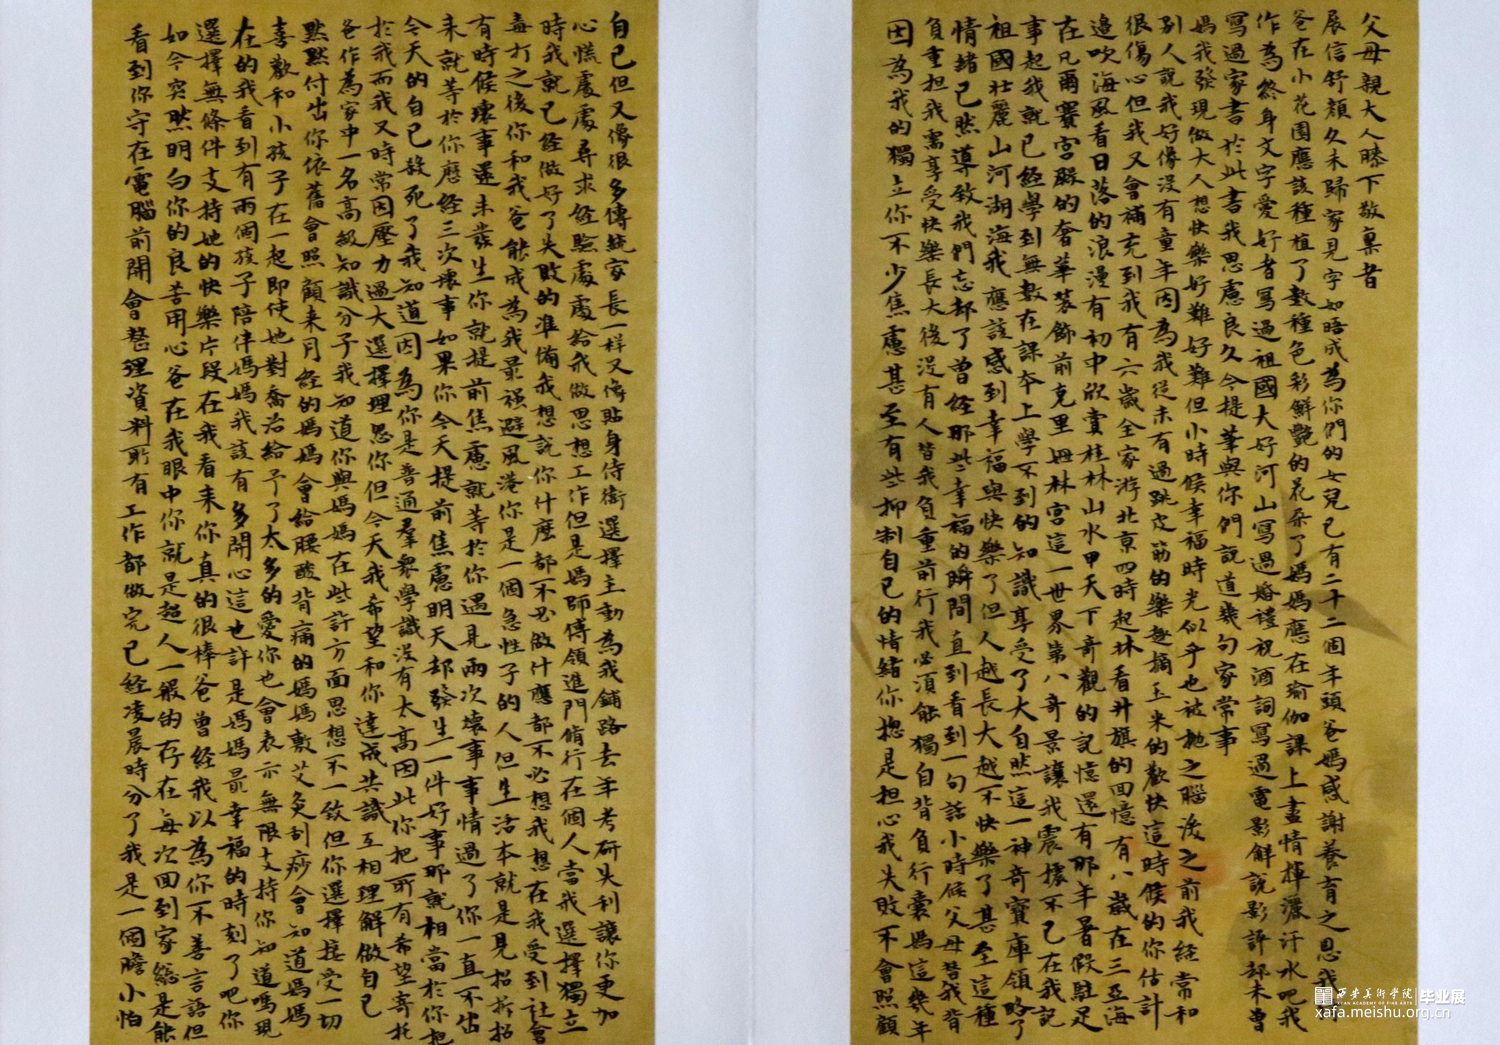 父母親大人膝下敬稟者
展信舒顏久未歸家見字如晤成為你們的女兒已有二十二個年頭爸媽感謝養育之恩我
爸在小花園應該種植了數種色彩鮮艷的花朵了媽媽應在瑜伽課上盡情揮灑汗水吧我
作為終身文字愛好者寫過祖國大好河山寫過婚禮祝酒詞寫過電影解說影評却未曾
寫過家書於此書我思慮良久今提筆與你們說道幾句家常事
媽我發現做大人想快樂好難好難但小時候幸福時光似乎也被拋之腦後之前我經常和
別人說我好像沒有童年因為我從未有過跳皮筋的樂趣摘玉米的歡快這時候的你估計
很傷心但我又會補充到我有六歲全家游北京四時起床看升旗的回憶有八歲在三亞海
邊吹海風看日落的浪漫有初中欣賞桂林山水甲天下奇觀的記憶還有那年暑假駐足
在凡爾賽宮殿的奢華裝飾前克里姆林宮這一世界第八奇景讓我震撼不已在我記
事起我就已經學到無數在課本上學不到的知識享受了大自然這一神奇寶庫領略了
祖國壯麗山河湖海我應該感到幸福與快樂了但人越長大越不快樂了甚至這種
情緒已然導致我們忘却了曾經那些幸福的瞬間直到看到一句話小時候父母替我背
負重担我寓享受快樂長大後沒有人替我負重前行我必須能獨自背負行囊媽這幾年
因為我的獨立你不少焦慮甚至有些抑制自己的情緒你總是担心我失敗不會照顧
自己但又像很多傳統家長一樣又像貼身侍衛選擇主動為我鋪路去年考研失利讓你更加
心慌處處尋求經驗處處給我做思想工作但是媽師傅領進門脩行在個人當我選擇獨立
時我就已經做好了失敗的準備我想說你什麼都不必做什應都不必想我想在我受到社會
毒打之後你和我爸能成為我最强避風港你是一個急性子的人但生活本就是見招拆招
有時候壞事還未發生你就提前焦慮就等於你遇見兩次壞事事情過了你一直不出
來就等於你歷經三次壞事如果你今天提前焦慮明天却發生一件好事那就相當於你把
今天的自己殺死了我知道因為你是普通羣眾學識沒有太高因此你把所有希望寄托
於我而我又時常因壓力過大選擇埋怨你但今天我希望和你達成共識互相理解做自己
爸作為家中一名高級知識分子我知道你與媽媽在些許方面思想不一致但你選擇接受一切
默默付出你依舊會照顧來月經的媽媽會給腰酸背痛的媽媽敷艾灸刮痧會知道媽媽
喜歡和小孩子在一起即使她對喬治給予了太多的愛你也會表示無限支持你知道嗎現
在的我看到有兩個孩子陪伴媽媽我該有多開心這也許是媽媽最幸福的時刻了吧你
選擇無條件支持她的快樂片段在我看來你真的很棒爸曾經我以為你不善言語但
如今突然明白你的良苦用心爸在我眼中你就是超人一般的存在每次回到家總是能
看到你守在電腦前開會整理資料所有工作都做完已經凌晨時分了我是一個膽小怕
西安美術學院 毕业展
XI'AN ACADEMY OF FINE ARTS
xafa.meishu.org.cn